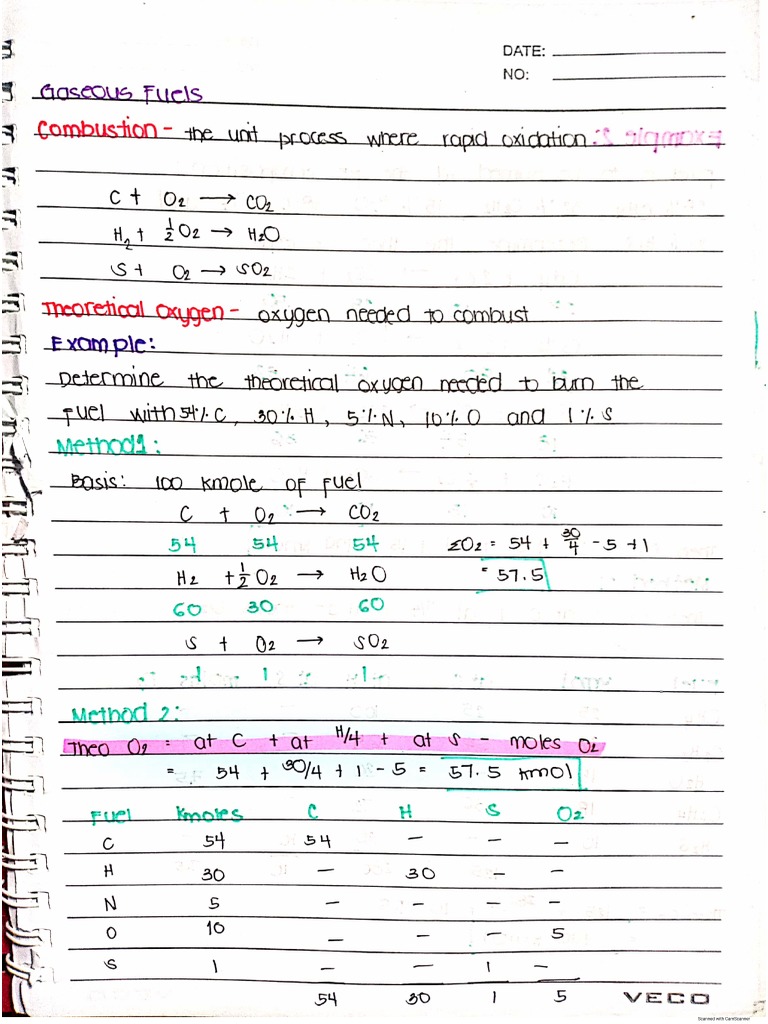 DATE:
NO:
Gaseous Fuels
Combustion - the unit process where rapid oxidation.
C + O2 → CO2
H2 + 1/2 O2 → H2O
S + O2 → SO2
Theoretical Oxygen - oxygen needed to combust
Example:
Determine the theoretical oxygen needed to burn the
fuel with 54% C, 30% H, 5% N, 10% O and 1% S
Method 1:
Basis: 100 kmole of fuel
C + O2 → CO2
54 54 54 ΣO2 = 54 + 30/4 - 5 + 1
H2 + 1/2 O2 → H2O = 57.5
60 30 60
S + O2 → SO2
1 1
Method 2:
Theo O2 = at C + at H/4 + at S - moles O2
= 54 + 30/4 + 1 - 5 = 57.5 kmol
Fuel Kmoles C H S O2
C 54 54 — — —
H 30 — 30 — —
N 5 — — — —
O 10 — — — 5
S 1 — — 1 —
54 30 1 5 VECO
Scanned with CamScanner